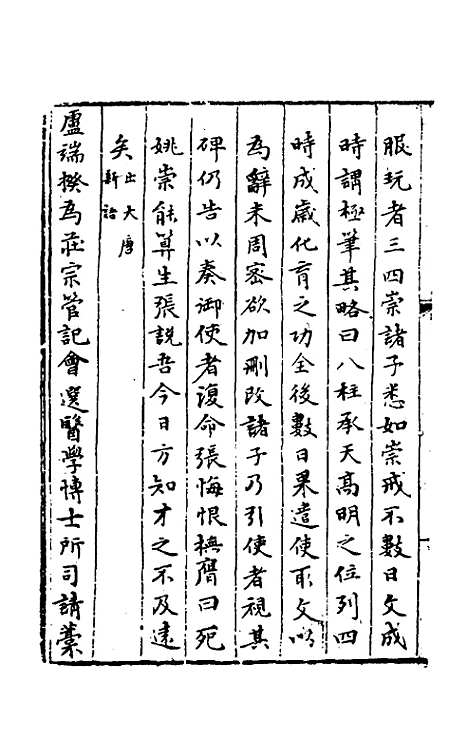 服玩者三四崇諸子悉如崇戒不數日文成
時謂極筆其略曰八柱承天高明之位列四
時成歲化育之功全後數日果遣使取文以
為辭未周密欲加刪改諸子乃引使者視其
碑仍告以奏御使者復命張悔恨撫膺曰死
姚崇能算生張說吾今日方知才之不及遠
矣出大唐
新語
盧端揆為莊宗管記會選醫學博士所司請藁